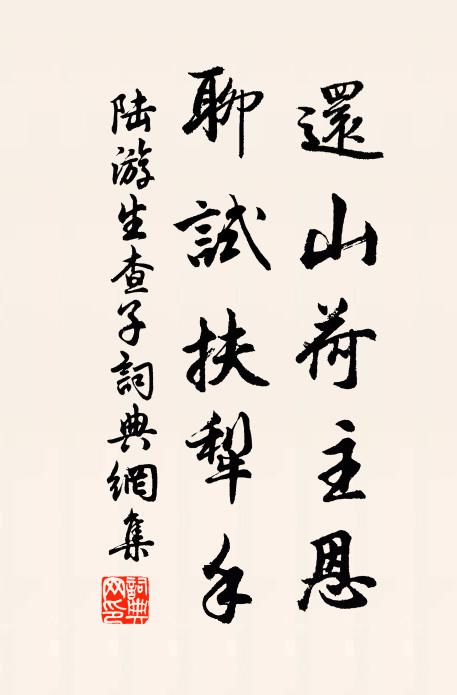 還山荷主恩
聊試扶犂手
陸游生查子詞典網集
詞典網印